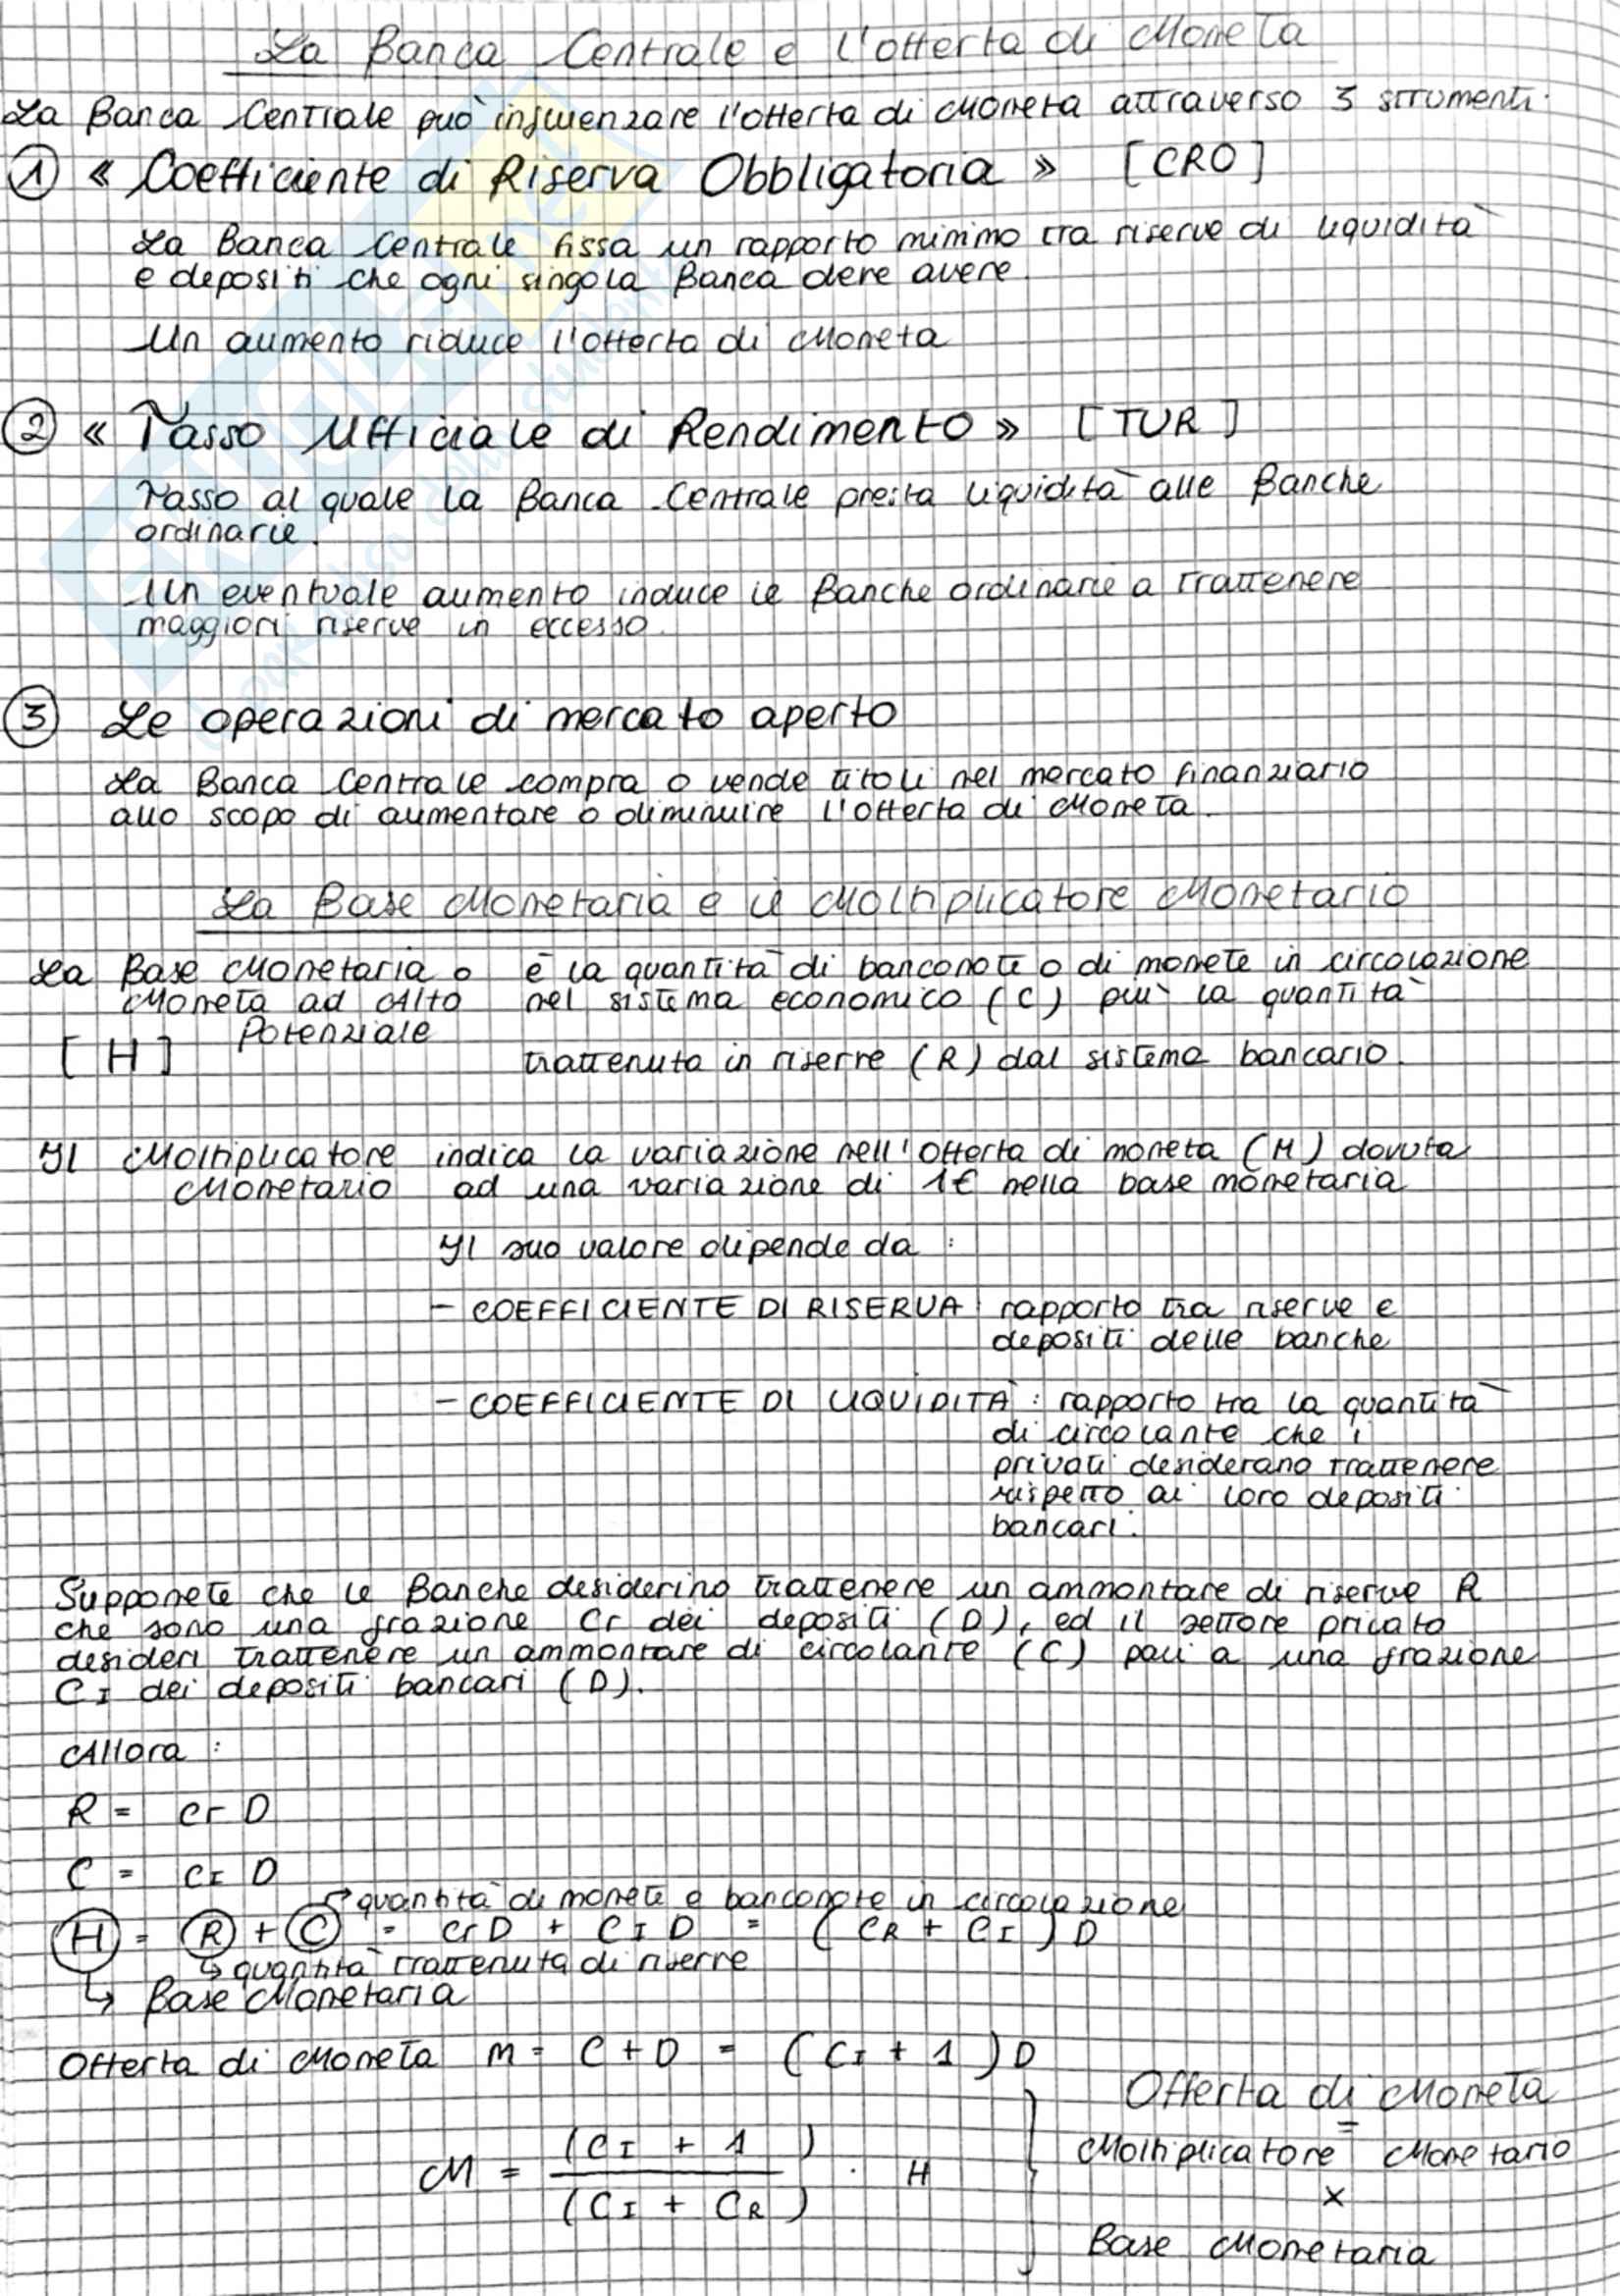 La Banca Centrale e l'offerta di Moneta
La Banca Centrale può influenzare l'offerta di Moneta attraverso 3 strumenti.
① « Coefficiente di Riserva Obbligatoria » [CRO]
La Banca Centrale fissa un rapporto minimo tra riserve di liquidità
e depositi che ogni singola Banca deve avere.
Un aumento riduce l'offerta di Moneta
② « Tasso Ufficiale di Rendimento » [TUR]
Tasso al quale la Banca Centrale presta liquidità alle Banche
ordinarie.
Un eventuale aumento induce le Banche ordinarie a trattenere
maggiori riserve in eccesso.
③ Le operazioni di mercato aperto
La Banca Centrale compra o vende titoli nel mercato finanziario
allo scopo di aumentare o diminuire l'offerta di Moneta.
La Base Monetaria e il Moltiplicatore Monetario
La Base Monetaria o è la quantità di banconote o di monete in circolazione
Moneta ad Alto nel sistema economico (C) più la quantità
Potenziale
[H] trattenuta in riserve (R) dal sistema bancario.
Il Moltiplicatore indica la variazione nell'offerta di moneta (M) dovuta
Monetario ad una variazione di 1€ nella base monetaria
Il suo valore dipende da :
- COEFFICIENTE DI RISERVA : rapporto tra riserve e
depositi delle banche
- COEFFICIENTE DI LIQUIDITÀ : rapporto tra la quantità
di circolante che i
privati desiderano trattenere
rispetto ai loro depositi
bancari.
Supponete che le Banche desiderino trattenere un ammontare di riserve R
che sono una frazione Cr dei depositi (D), ed il settore privato
desideri trattenere un ammontare di circolante (C) pari a una frazione
CI dei depositi bancari (D).
Allora :
R = cr D
C = cI D
quantità di monete e banconote in circolazione
H = R + C = crD + CI D = (CR + CI) D
↳ quantità trattenuta di riserve
↳ Base Monetaria
Offerta di Moneta M = C + D = (CI + 1) D
Offerta di Moneta
=
(CI + 1)
Moltiplicatore Monetario
M = ——— · H
×
(CI + CR)
Base Monetaria